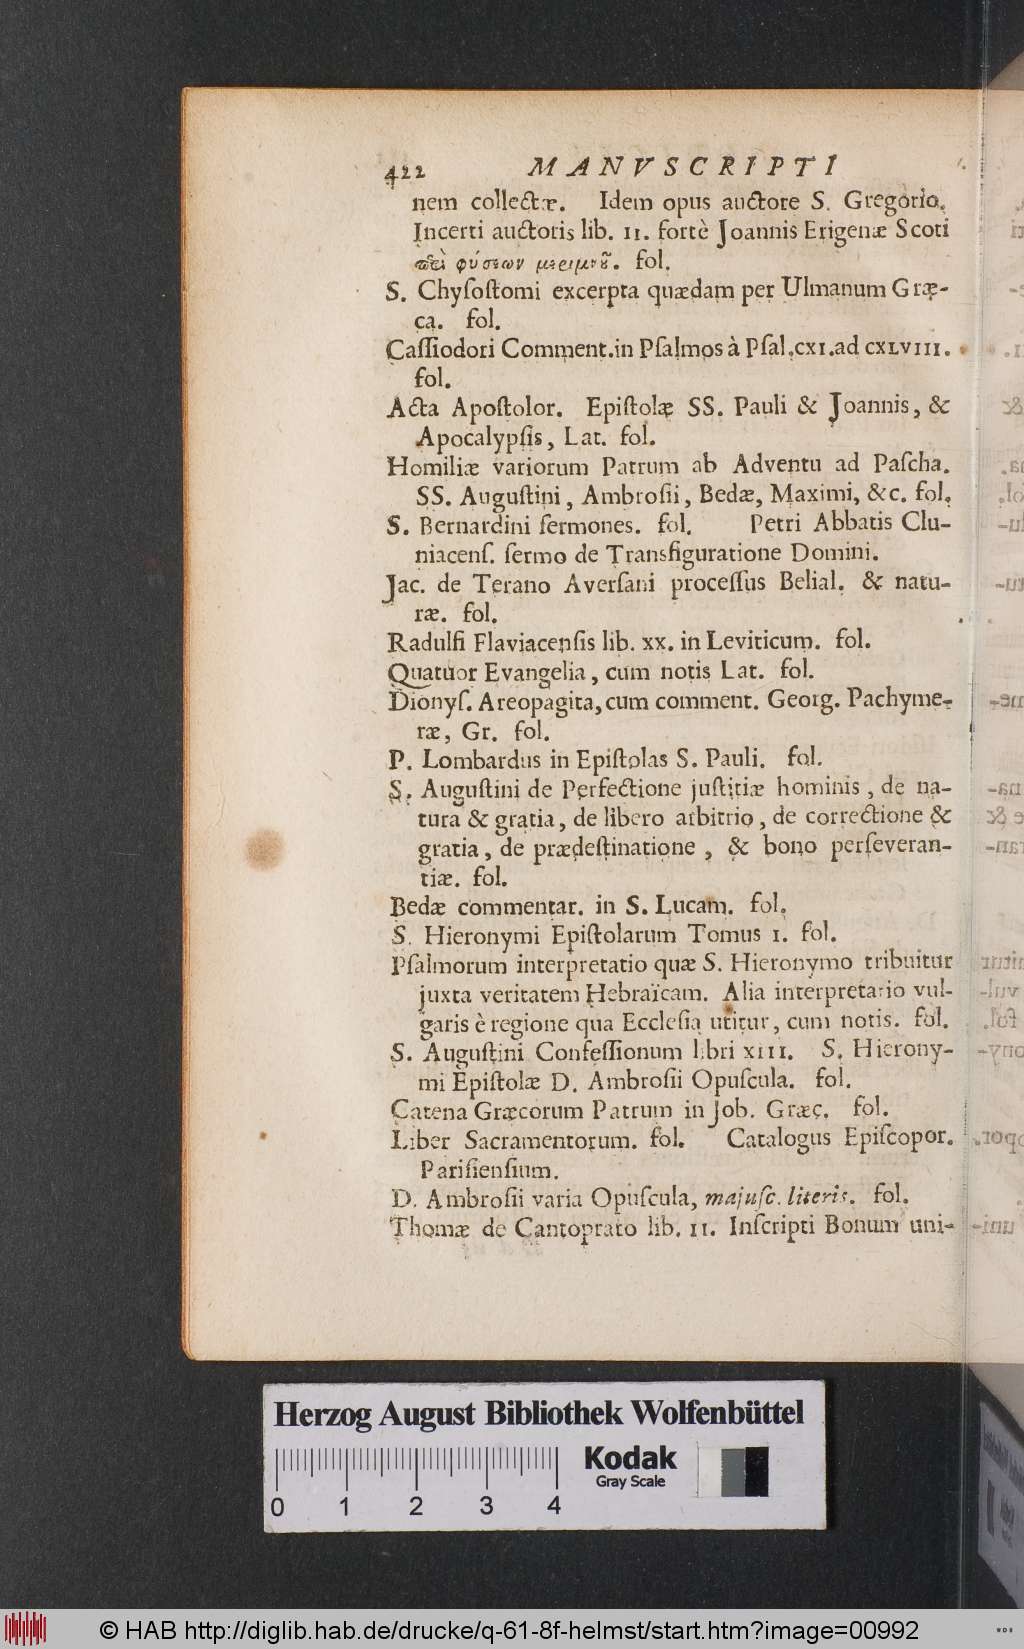 422 MANVSCRIPTI
nem collectæ. Idem opus auctore S. Gregorio.
Incerti auctoris lib. II. fortè Joannis Erigenæ Scoti
φύσεων μερισμοῦ. fol.
S. Chysoſtomi excerpta quædam per Ulmanum Græ-
ca. fol.
Caſſiodori Comment. in Pſalmos à Pſal. CXI. ad CXLVIII.
fol.
Acta Apoſtolor. Epiſtolæ SS. Pauli & Joannis, &
Apocalypſis, Lat. fol.
Homiliæ variorum Patrum ab Adventu ad Paſcha.
SS. Auguſtini, Ambroſii, Bedæ, Maximi, &c. fol.
S. Bernardini ſermones. fol. Petri Abbatis Clu-
niacenſ. ſermo de Transfiguratione Domini.
Jac. de Terano Averſani proceſſus Belial. & natu-
ræ. fol.
Radulfi Flaviacenſis lib. XX. in Leviticum. fol.
Quatuor Evangelia, cum notis Lat. fol.
Dionyſ. Areopagita, cum comment. Georg. Pachyme-
ræ, Gr. fol.
P. Lombardus in Epiſtolas S. Pauli. fol.
S. Auguſtini de Perfectione juſtitiæ hominis, de na-
tura & gratia, de libero arbitrio, de correctione &
gratia, de prædeſtinatione, & bono perſeveran-
tiæ. fol.
Bedæ commentar. in S. Lucam. fol.
S. Hieronymi Epiſtolarum Tomus I. fol.
Pſalmorum interpretatio quæ S. Hieronymo tribuitur
juxta veritatem Hebraïcam. Alia interpretatio vul-
garis è regione qua Eccleſia utitur, cum notis. fol.
S. Auguſtini Confeſſionum libri XIII. S. Hierony-
mi Epiſtolæ D. Ambroſii Opuſcula. fol.
Catena Græcorum Patrum in Job. Græc. fol.
Liber Sacramentorum. fol. Catalogus Epiſcopor.
Pariſienſium.
D. Ambroſii varia Opuſcula, majuſc. literis. fol.
Thomæ de Cantoprato lib. II. Inſcripti Bonum uni-
Herzog August Bibliothek Wolfenbüttel
Kodak
Gray Scale
0 1 2 3 4
© HAB http://diglib.hab.de/drucke/q-61-8f-helmst/start.htm?image=00992